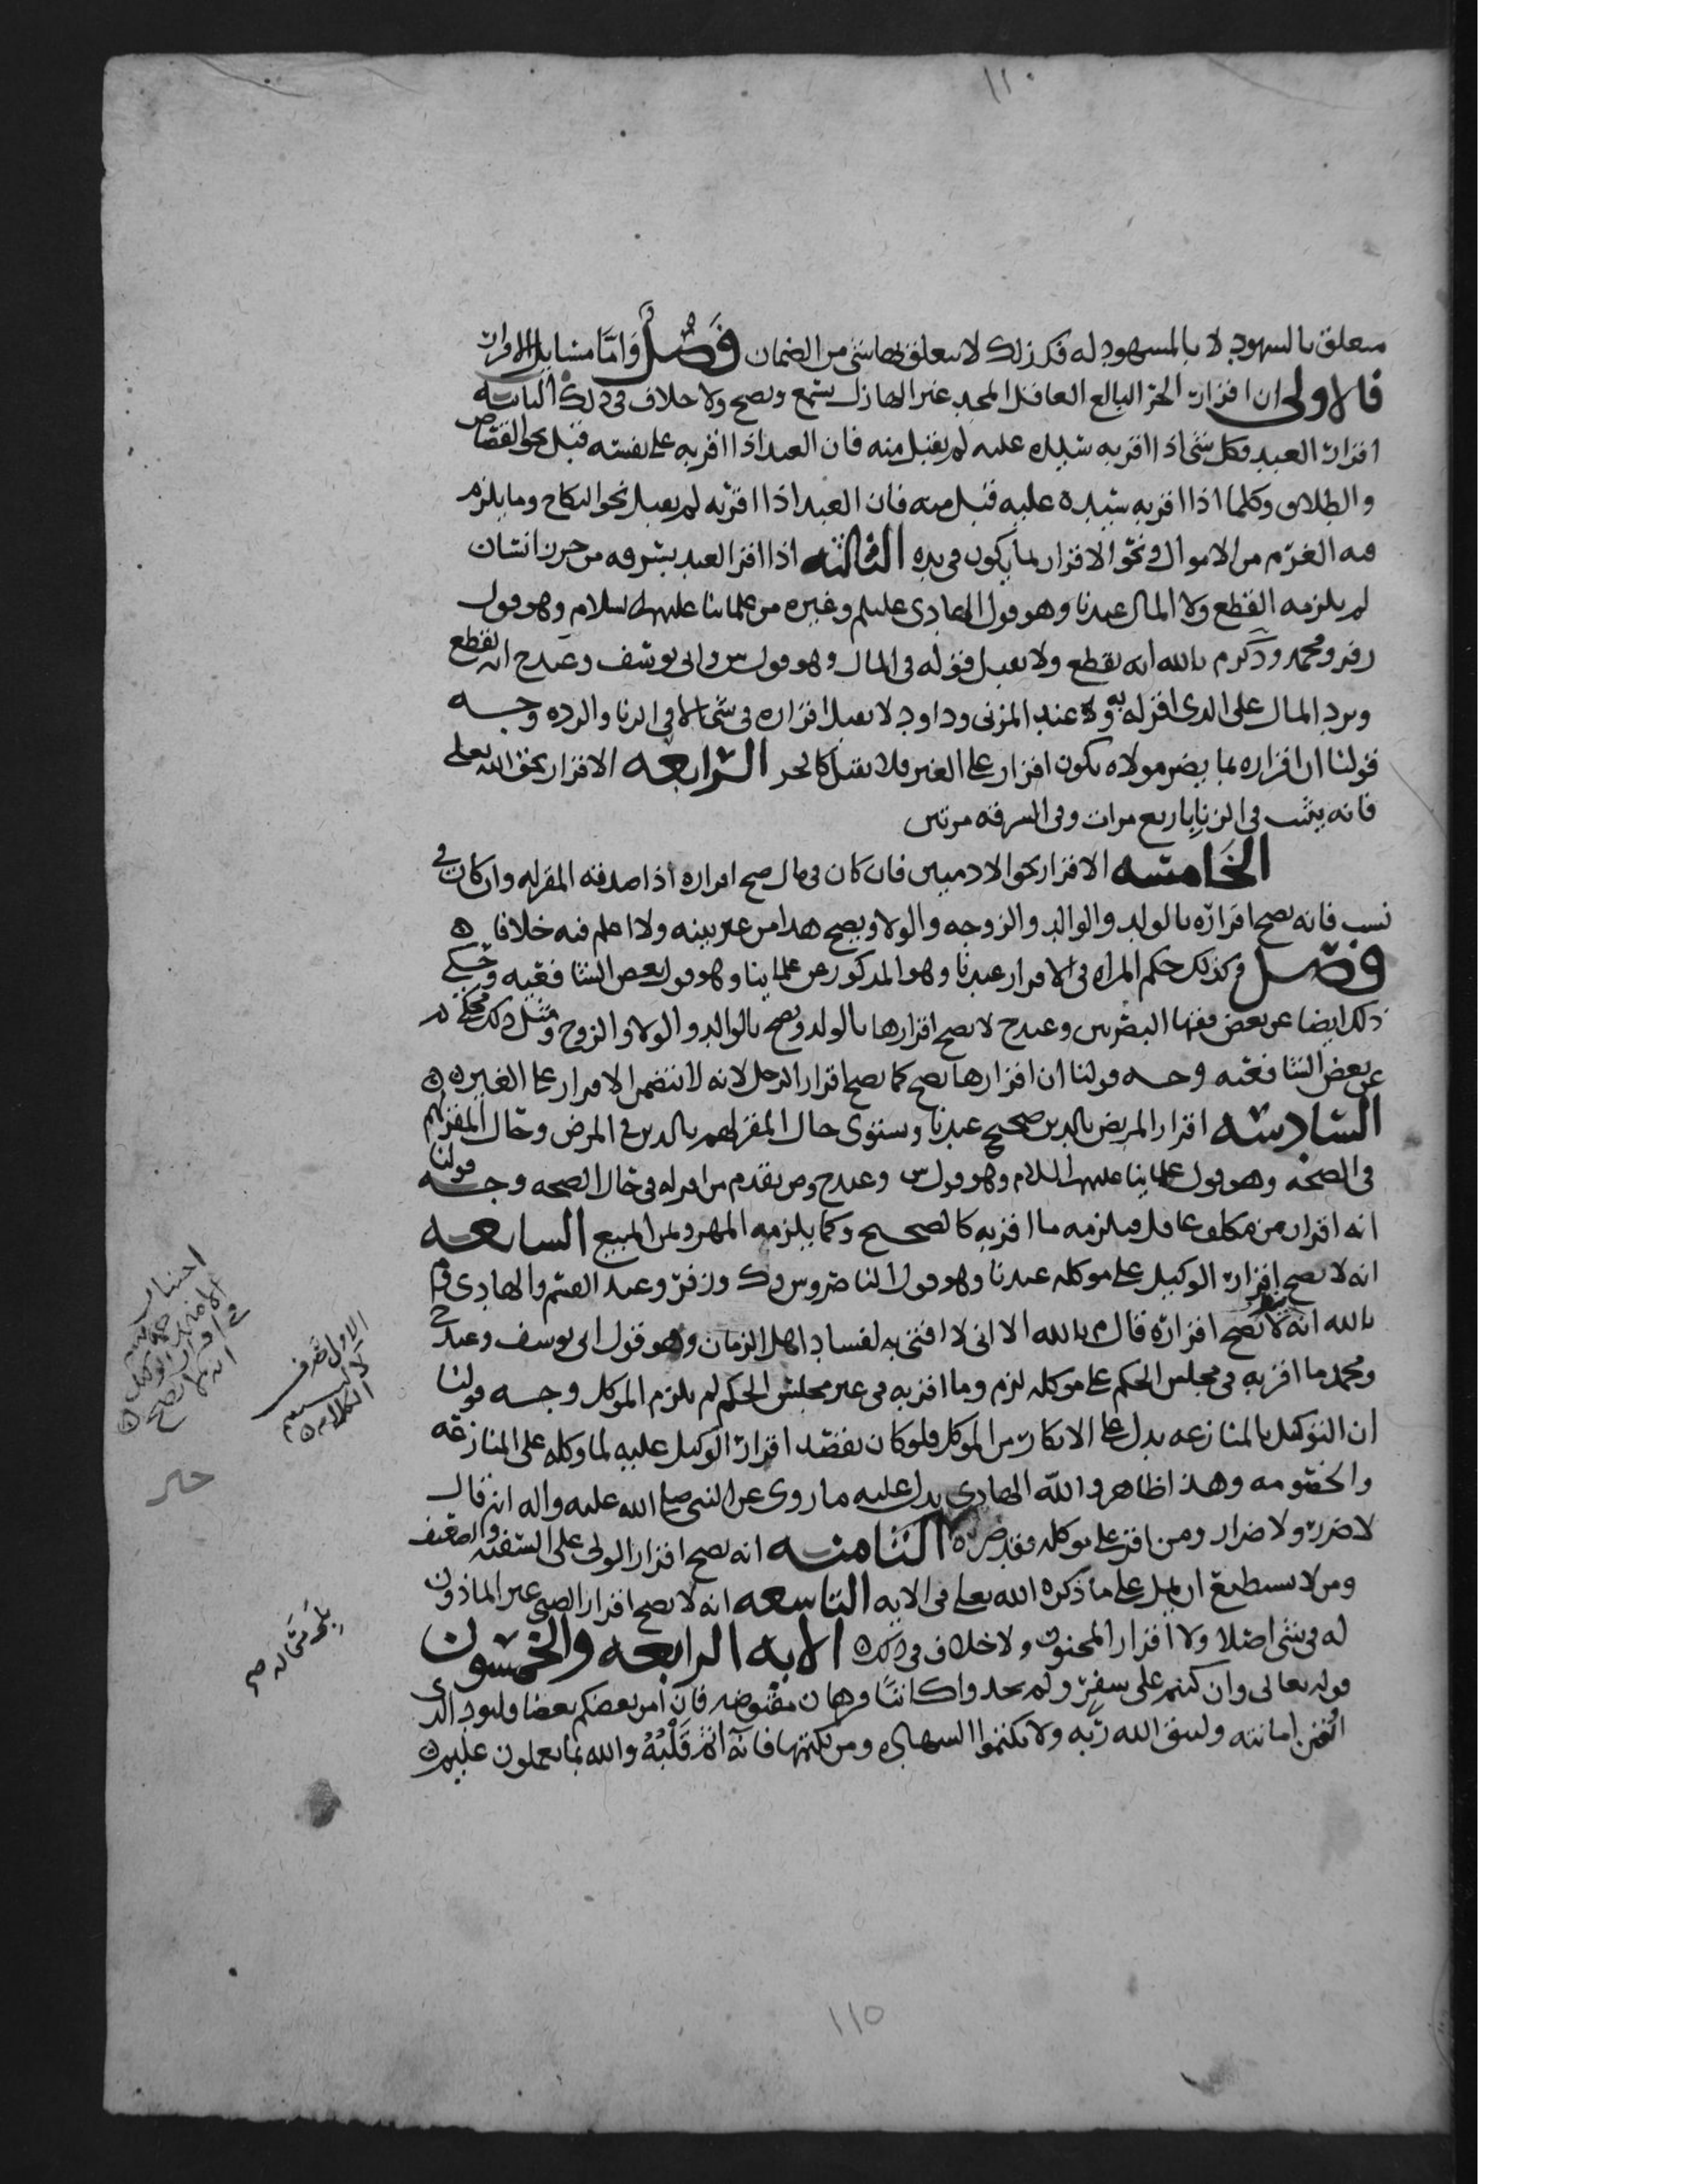 ١١٠
متعلق بالشهود لا بالمشهود له فكذلك لا يتعلق بها شي من الضمان فصل واما مسايل الاقرار
فالاولى ان اقرار الحر البالغ العاقل المجد غير الهازل يسمع ويصح ولا خلاف في ذلك الثانيه
اقرار العبد فكل شي اذا اقر به سيده عليه لم يقبل منه فان العبد اذا اقر به على نفسه قبل نحو القصاص
والطلاق وكلما اذا اقر به سيده عليه قبل منه فان العبد اذا اقر به لم يقبل نحو النكاح وما يلزم
فيه الغرم من الاموال ونحو الاقرار بما يكون في يده الثالثه اذا اقر العبد بسرقه من حرز انسان
لم يلزمه القطع ولا المال عندنا وهو قول الهادي عليلم وغيره من علمائنا عليهم السلام وهو قول
زفر ومحمد وذكر م بالله انه يقطع ولا يقبل قوله في المال وهو قول س وابي يوسف وعند ح انه يقطع
ويرد المال على الذي اقر له به وعند المزني وداود لا يقبل اقراره في شي الا في الزنا والرده وجه
قولنا ان اقراره بما يضر مولاه يكون اقرار على الغير فلا يقبل كالحر الرابعه الاقرار بحق الله تعلى
فانه يثبت في الزنا باربع مرات وفي السرقه مرتين
الخامسه الاقرار بحق الادميين فان كان في مال صح اقراره اذا صدقه المقر له وان كان في
نسب فانه يصح اقراره بالولد والوالد والزوجه والولا ويصح هذا من غير بينه ولا اعلم فيه خلافا ه
فصل وكذلك حكم المراه في الاقرار عندنا وهو المذكور عن علماينا وهو قول بعض الشافعيه وحكي
ذلك ايضا عن بعض فقها البصريين وعند ح لا يصح اقرارها بالولد ويصح بالوالد والولا والزوج ومثل ذلك محكي
عن بعض الشافعيه وجه قولنا ان اقرارها يصح كما يصح اقرار الرجل لانه لا يتضمن الاقرار على الغير ه ه
السادسه اقرار المريض بالدين صحيح عندنا ويستوي حال المقر لهم بالدين في المرض وحال المقر لهم
في الصحه وهو قول علماينا عليهم السلام وهو قول س وعند ح يقدم من اقر له في حال الصحه وجه قولنا
انه اقرار من مكلف عاقل فيلزمه ما اقر به كالصحيح وكما يلزمه المهر وثمن المبيع السابعه
انه لا يصح اقرار الوكيل على موكله عندنا وهو قول الناصر وس وك وزفر وعند القسم والهادي وم
بالله انه يصح اقراره قال م بالله الا اني لا افتي به لفساد اهل الزمان وهو قول ابي يوسف وعند ح
ومحمد ما اقر به في مجلس الحكم على موكله لزم وما اقر به في غير مجلس الحكم لم يلزم الموكل وجه قولنا
ان التوكيل بالمنازعه يدل على الانكار من الموكل فلو كان يقصد اقرار الوكيل عليه لما وكله على المنازعه
والخصومه وهذا ظاهر والله الهادي يدل عليه ما روي عن النبي صلى الله عليه واله انه قال
لا ضرر ولا ضرار ومن اقر على موكله فقد ضره الثامنه انه يصح اقرار الولي على السفيه والضعيف
ومن لا يستطيع ان يمل على ما ذكره الله تعلى في الايه التاسعه انه لا يصح اقرار الصبي غير الماذون
له في شي اصلا ولا اقرار المجنون ولا خلاف في ذلك ه الايه الرابعه والخمسون
قوله تعالى وان كنتم على سفر ولم تجدوا كاتبا فرهان مقبوضه فان امن بعضكم بعضا فليود الذي
اؤتمن امانته وليتق الله ربه ولا تكتموا الشهاده ومن يكتمها فانه اثم قلبه والله بما تعملون عليم ه
الاول تصرف
الكلام ه
١١٥